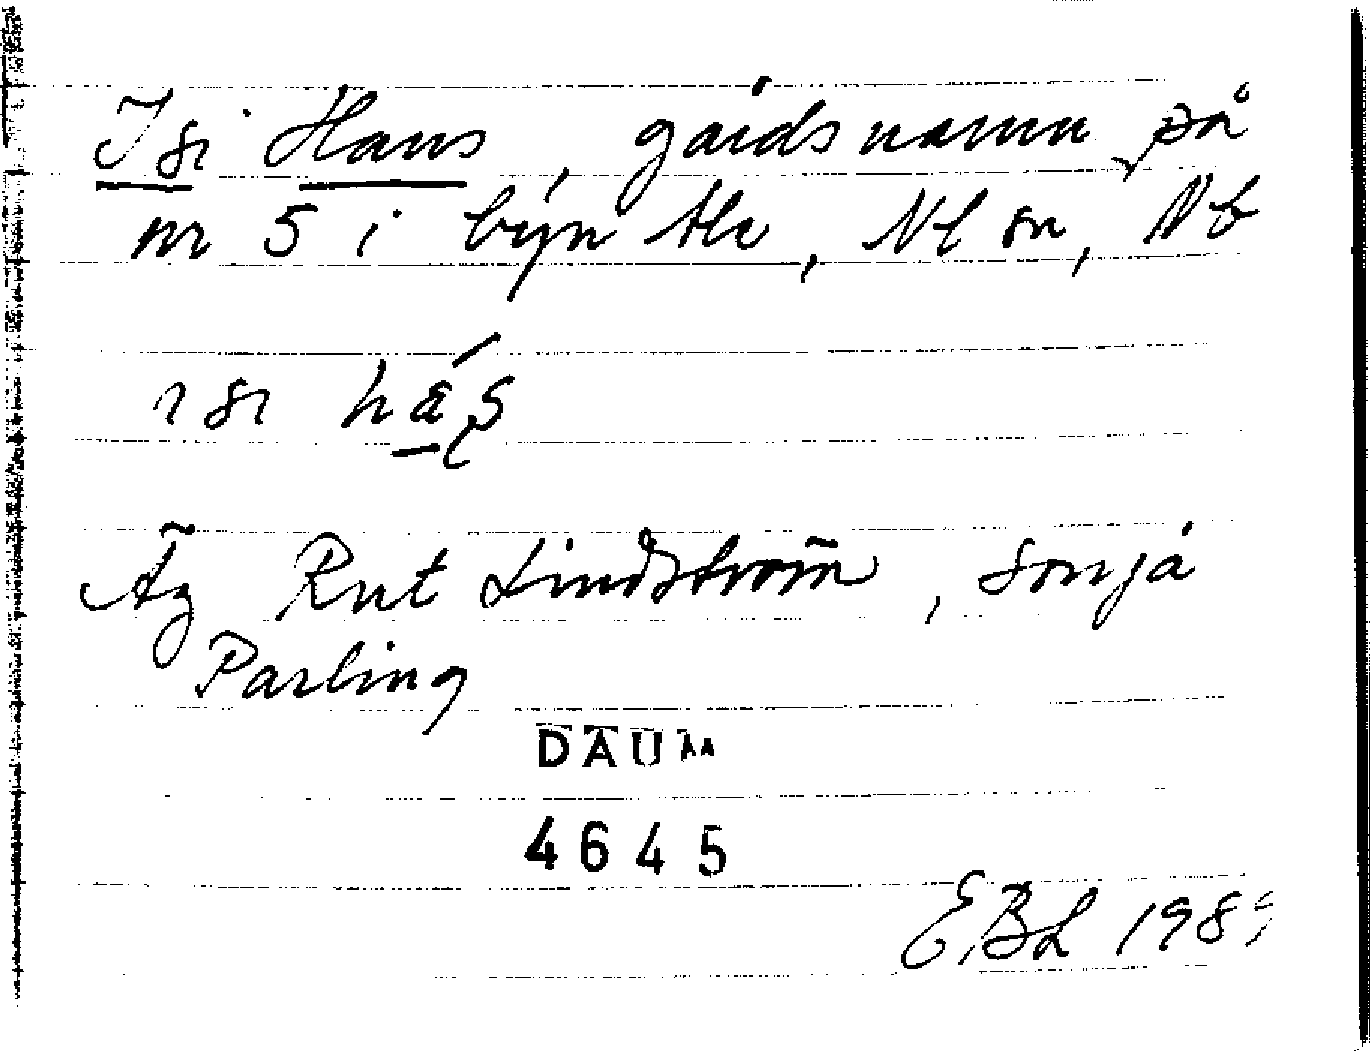 Isi Hans, gårdsnamn på
nr 5 i byn Ale, Nl sn, Nb
ısı ha̱ʂ
Äg Rut Lindström, Sonja
Parling
DAUM
4645
EBL 1989